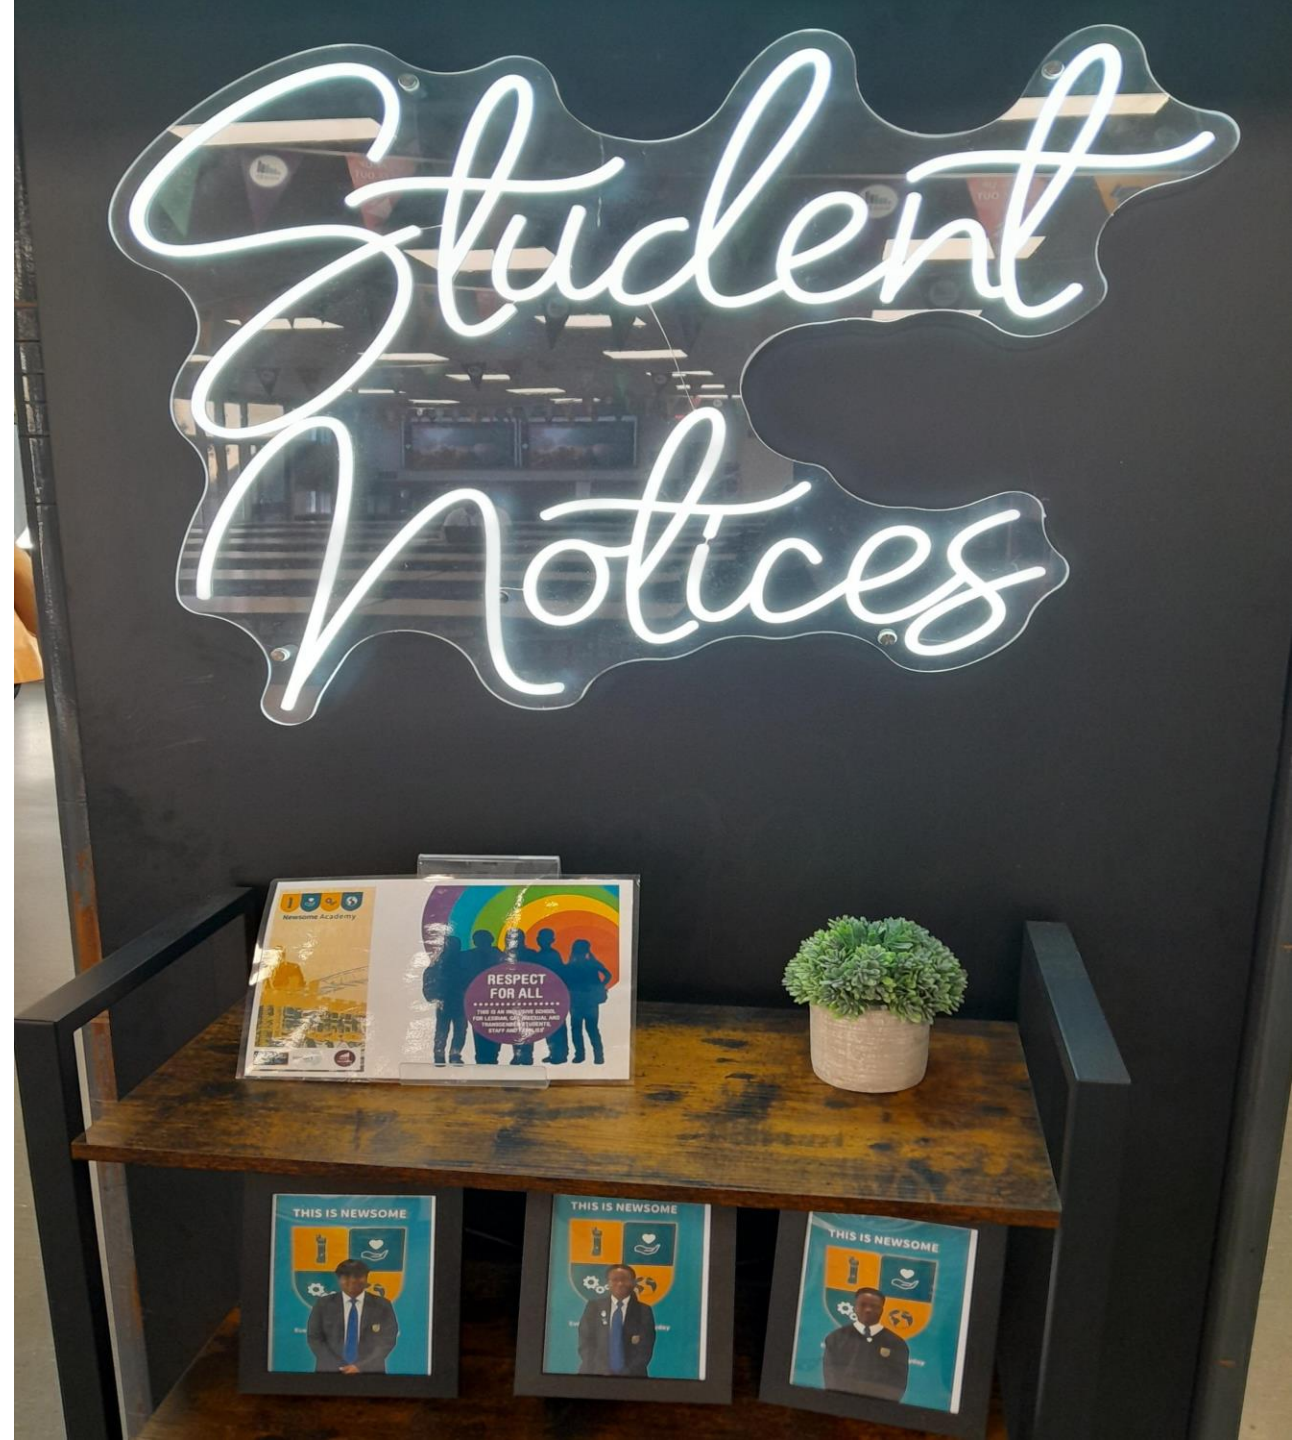 Student
Notices
Newsome Academy
RESPECT
FOR ALL
THIS IS AN INCLUSIVE SCHOOL
FOR LESBIAN, GAY, BISEXUAL AND
TRANSGENDER STUDENTS,
STAFF AND
THIS IS NEWSOME
THIS IS NEWSOME
THIS IS NEWSOME